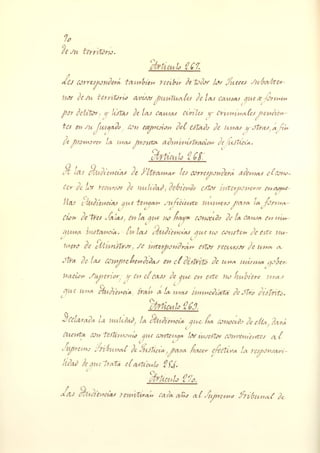 70
de su territorio.
Artículo 267.
Les corresponderá tambien recibir de todos los Jueces subalter-
nos de su territorio avisos puntuales de las causas que se formen
por delitos, y listas de las causas civiles y criminales pendien-
tes en su juzgado, con expresion del estado de unas y otras, á fin
de promover la mas pronta administracion de justicia.
Artículo 268.
A las Audiencias de Ultramar les corresponderá ademas el cono-
cer de los recursos de nulidad, debiendo estos interponerse en aque-
llas Audiencias que tengan suficiente número para la forma-
cion de tres Salas, en la que no haya conocido de la causa en nin-
guna instancia. En las Audiencias que no consten de este nú-
mero de Ministros, se interpondrán estos recursos de una á
otra de las comprehendidas en el distrito de una misma gober-
nacion superior; y en el caso de que en este no hubiere mas
que una Audiencia, irán á la mas inmediata de otro distrito.
Artículo 269.
Declarada la nulidad, la Audiencia que ha conocido de ella, dará
cuenta con testimonio que contenga los insertos convenientes al
Supremo Tribunal de Justicia, para hacer efectiva la responsabi-
lidad de que trata el artículo 254.
Artículo 270.
Las Audiencias remitirán cada año al Supremo Tribunal de